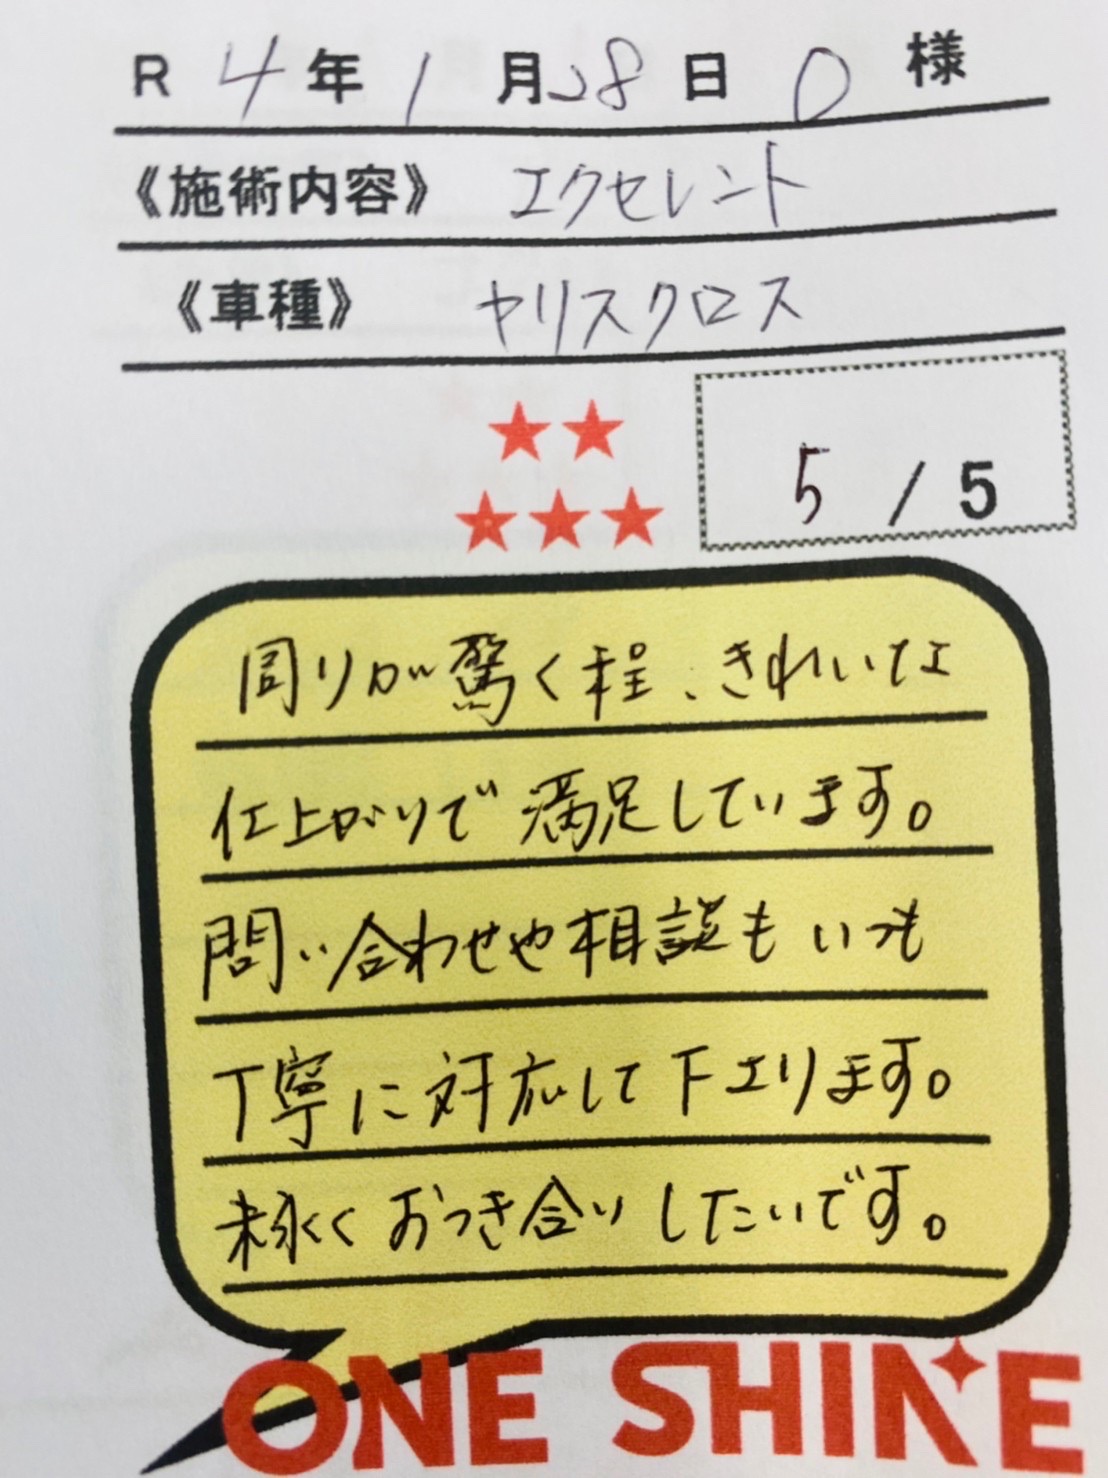 R 4年 1月28日 O 様
《施術内容》 エクセレント
《車種》 ヤリスクロス
5 / 5
周りが驚く程、きれいな
仕上がりで満足しています。
問い合わせや相談もいつも
丁寧に対応して下さります。
末永くおつき合いしたいです。
ONE SHINE